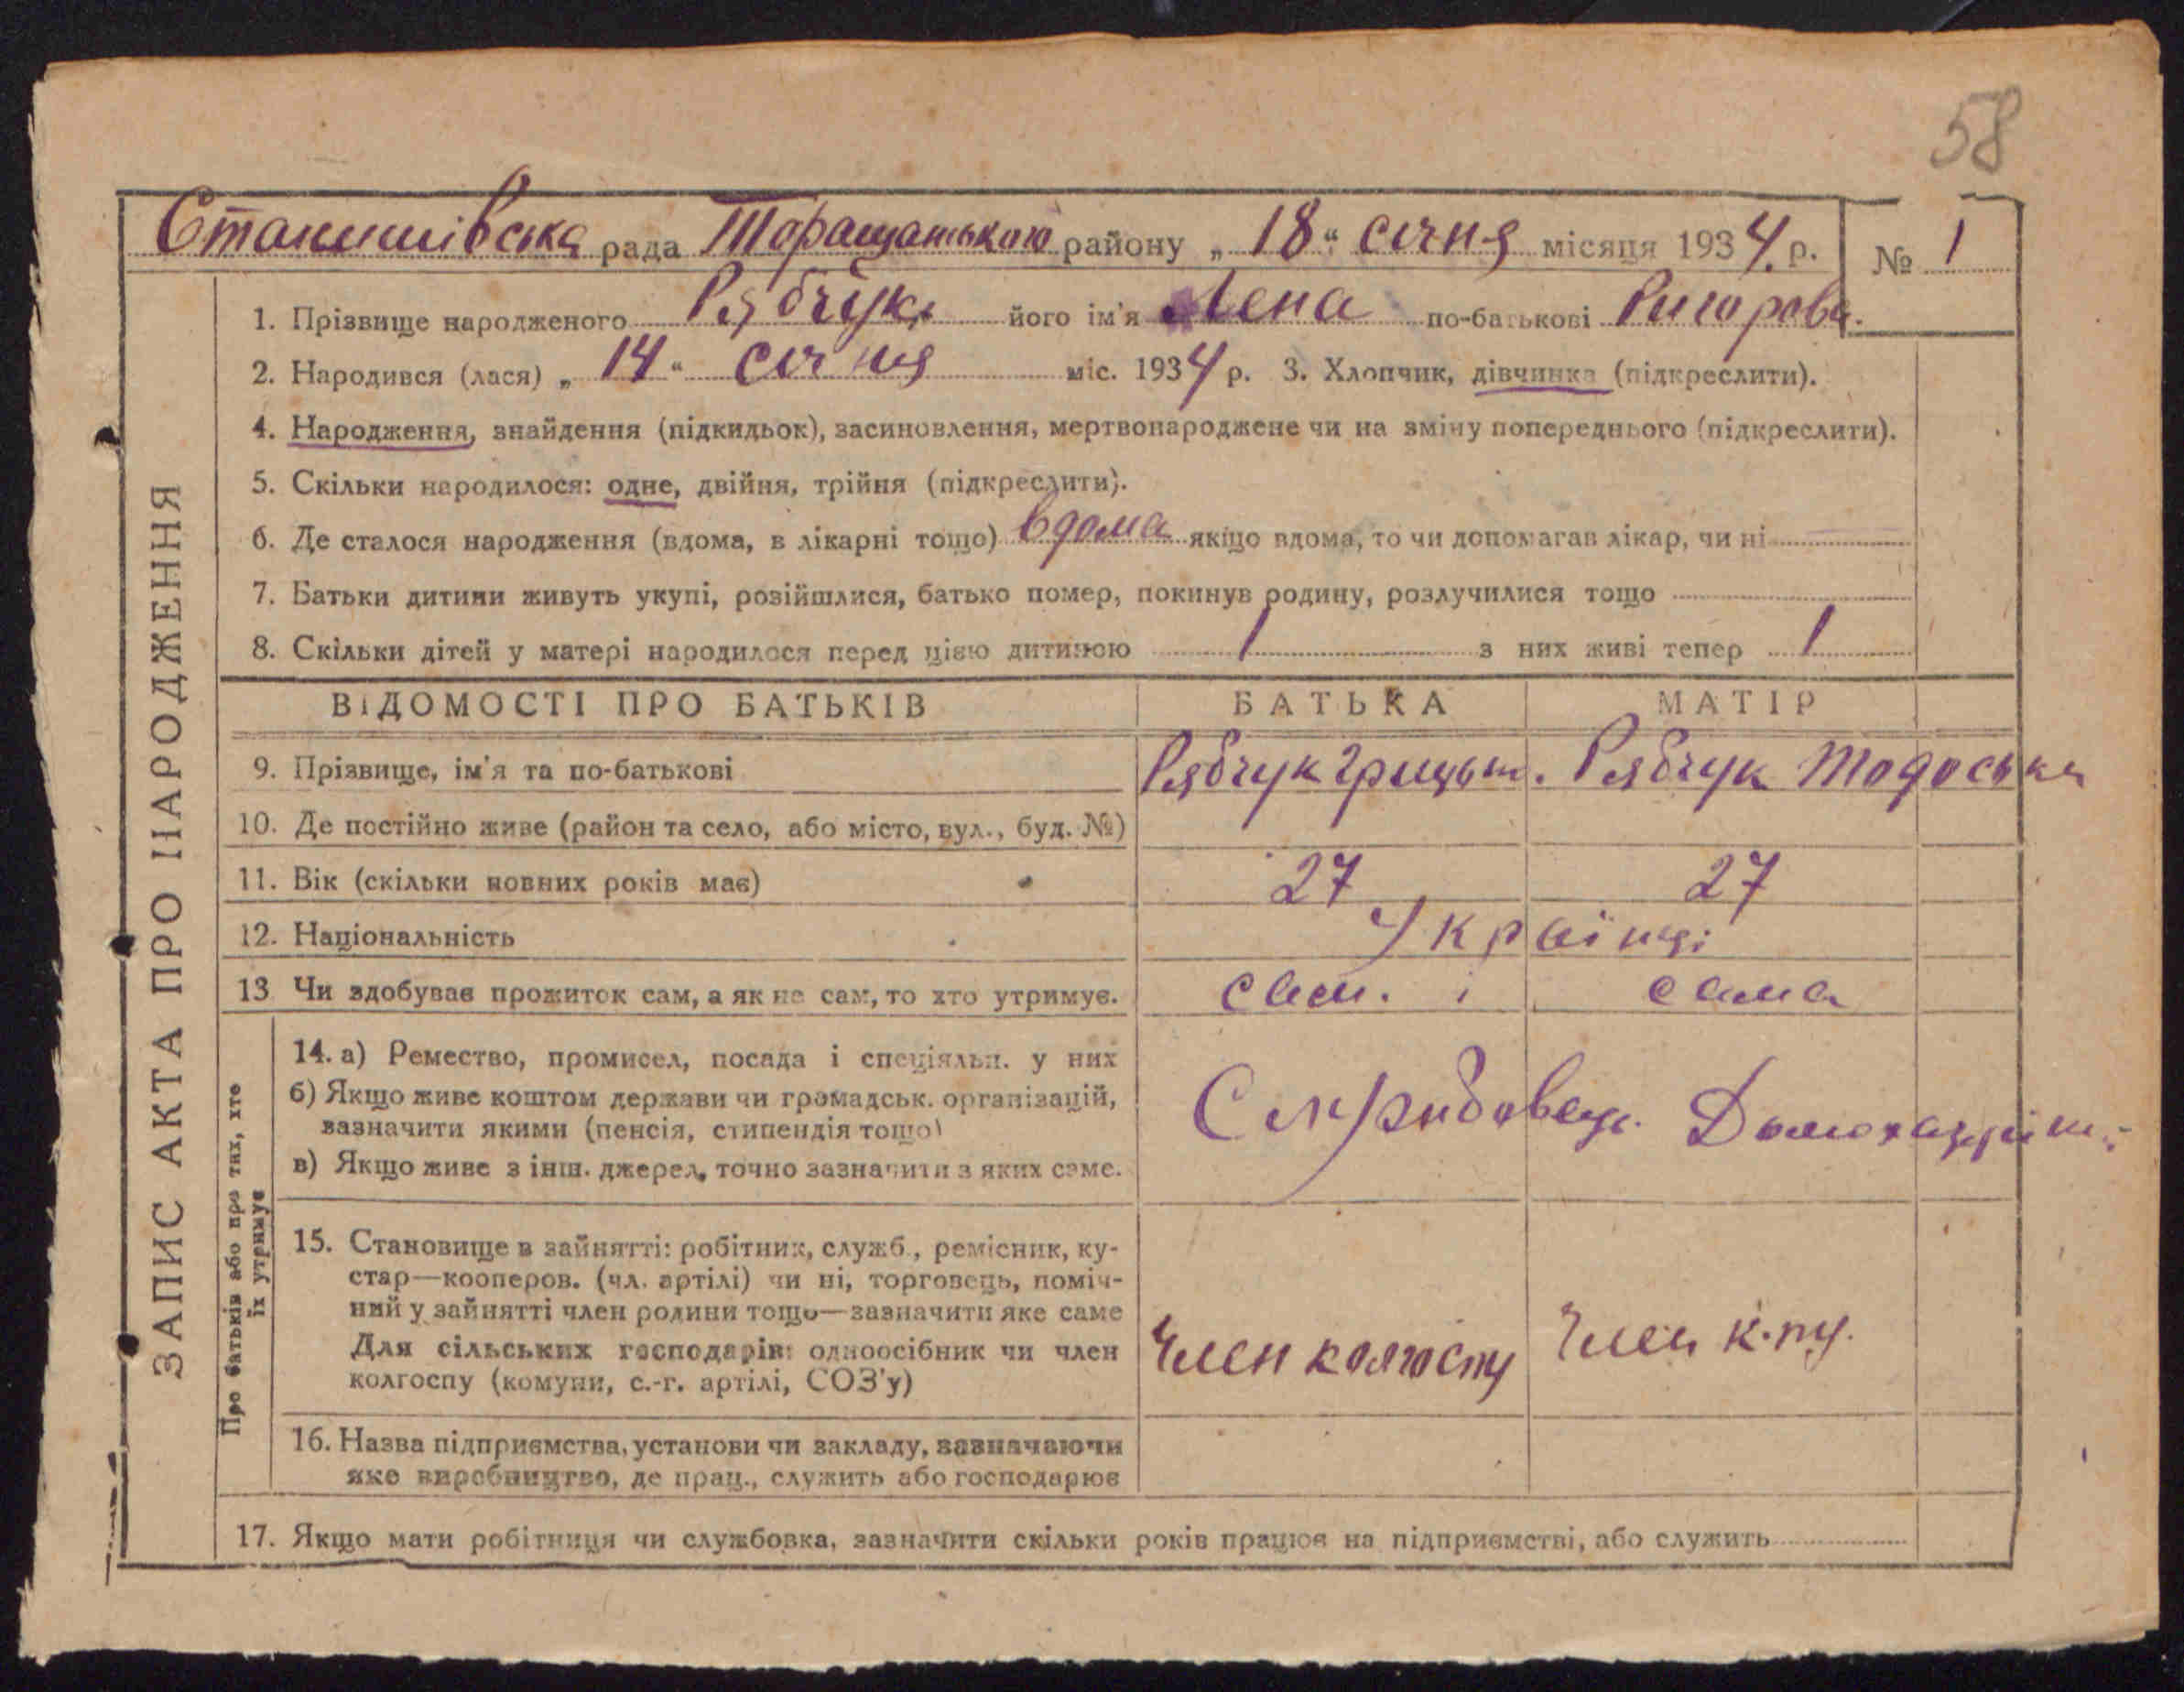 58
Станишівська рада Таращанського району „18“ січня місяця 1934 р. № 1
1. Прізвище народженого Рябчук його ім'я Лена по-батькові Ригорова.
2. Народився (лася) „14“ січня міс. 1934 р. 3. Хлопчик, дівчинка (підкреслити).
4. Народження, знайдення (підкидьок), засиновлення, мертвонароджене чи на зміну попереднього (підкреслити).
5. Скільки народилося: одне, двійня, трійня (підкреслити).
6. Де сталося народження (вдома, в лікарні тощо) вдома якщо вдома, то чи допомагав лікар, чи ні
7. Батьки дитини живуть укупі, розійшлися, батько помер, покинув родину, розлучилися тощо
8. Скільки дітей у матері народилося перед цією дитиною 1 з них живі тепер 1
ЗАПИС АКТА ПРО НАРОДЖЕННЯ
ВІДОМОСТІ ПРО БАТЬКІВ БАТЬКА МАТІР
9. Прізвище, ім'я та по-батькові Рябчук Рябчук Тодоська
10. Де постійно живе (район та село, або місто, вул., буд. №)
11. Вік (скільки повних років має) 27 27
12. Національність Українці
13 Чи здобуває прожиток сам, а як не сам, то хто утримує. сам. і сама
Про батьків або про тих, хто
їх утримує
14. а) Ремество, промисел, посада і спеціяльн. у них
б) Якщо живе коштом держави чи громадськ. організацій,
зазначити якими (пенсія, стипендія тощо)
в) Якщо живе з інш. джерел, точно зазначити з яких саме.
15. Становище в зайнятті: робітник, служб., ремісник, ку-
стар—кооперов. (чл. артілі) чи ні, торговець, поміч-
ний у зайнятті член родини тощо—зазначити яке саме
Для сільських господарів: одноосібник чи член
колгоспу (комуни, с.-г. артілі, СОЗ'у)
Член колгоспу Член к-пу.
16. Назва підприємства, установи чи закладу, зазначаючи
яке виробництво, де прац., служить або господарює
17. Якщо мати робітниця чи службовка, зазначити скільки років працює на підприємстві, або служить